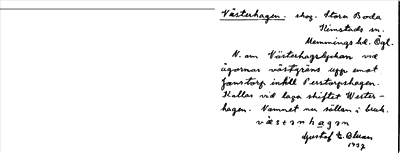 Västerhagen. skog. Stora Boda
Kimstads sn.
Memmings hd. Ögl.
N. om Västerhagslyckan vid
ägornas västgräns upp emot
Janstorp intill Perstorpshagen.
Kallas vid laga skiftet Wester-
hagen. Namnet nu sällan i bruk.
västanhagan
Gustaf E. Olsson
1937